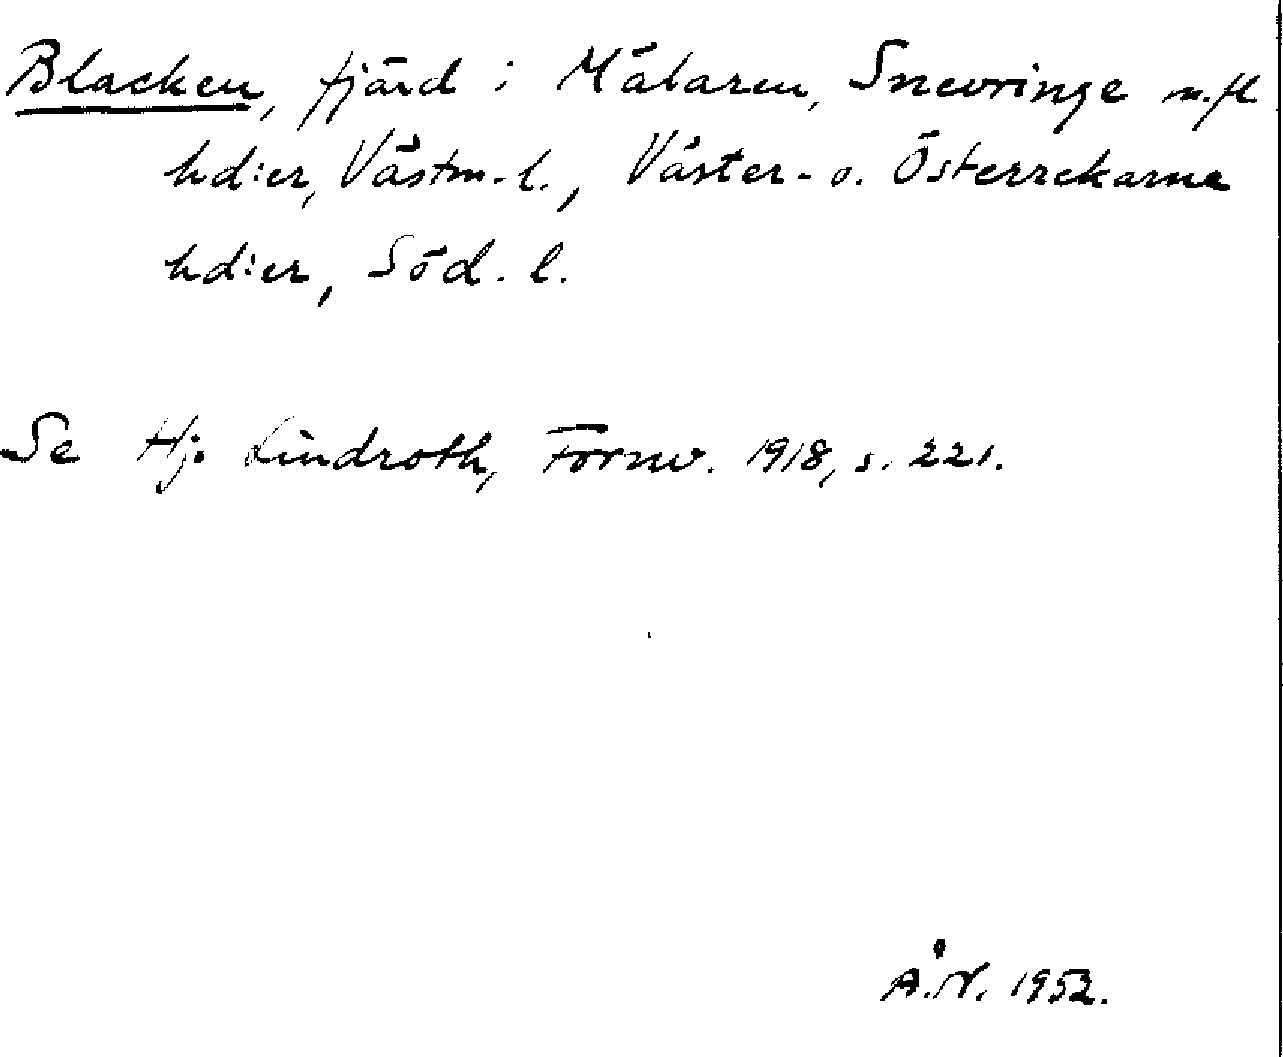 Blacken, fjärd i Mälaren, Snevringe m.fl
hd:er, Västm. l., Väster- o. Österrekarne
hd:er, Söd. l.
Se Hj. Lindroth, Fornv. 1918, s. 221.
Å.N. 1952.